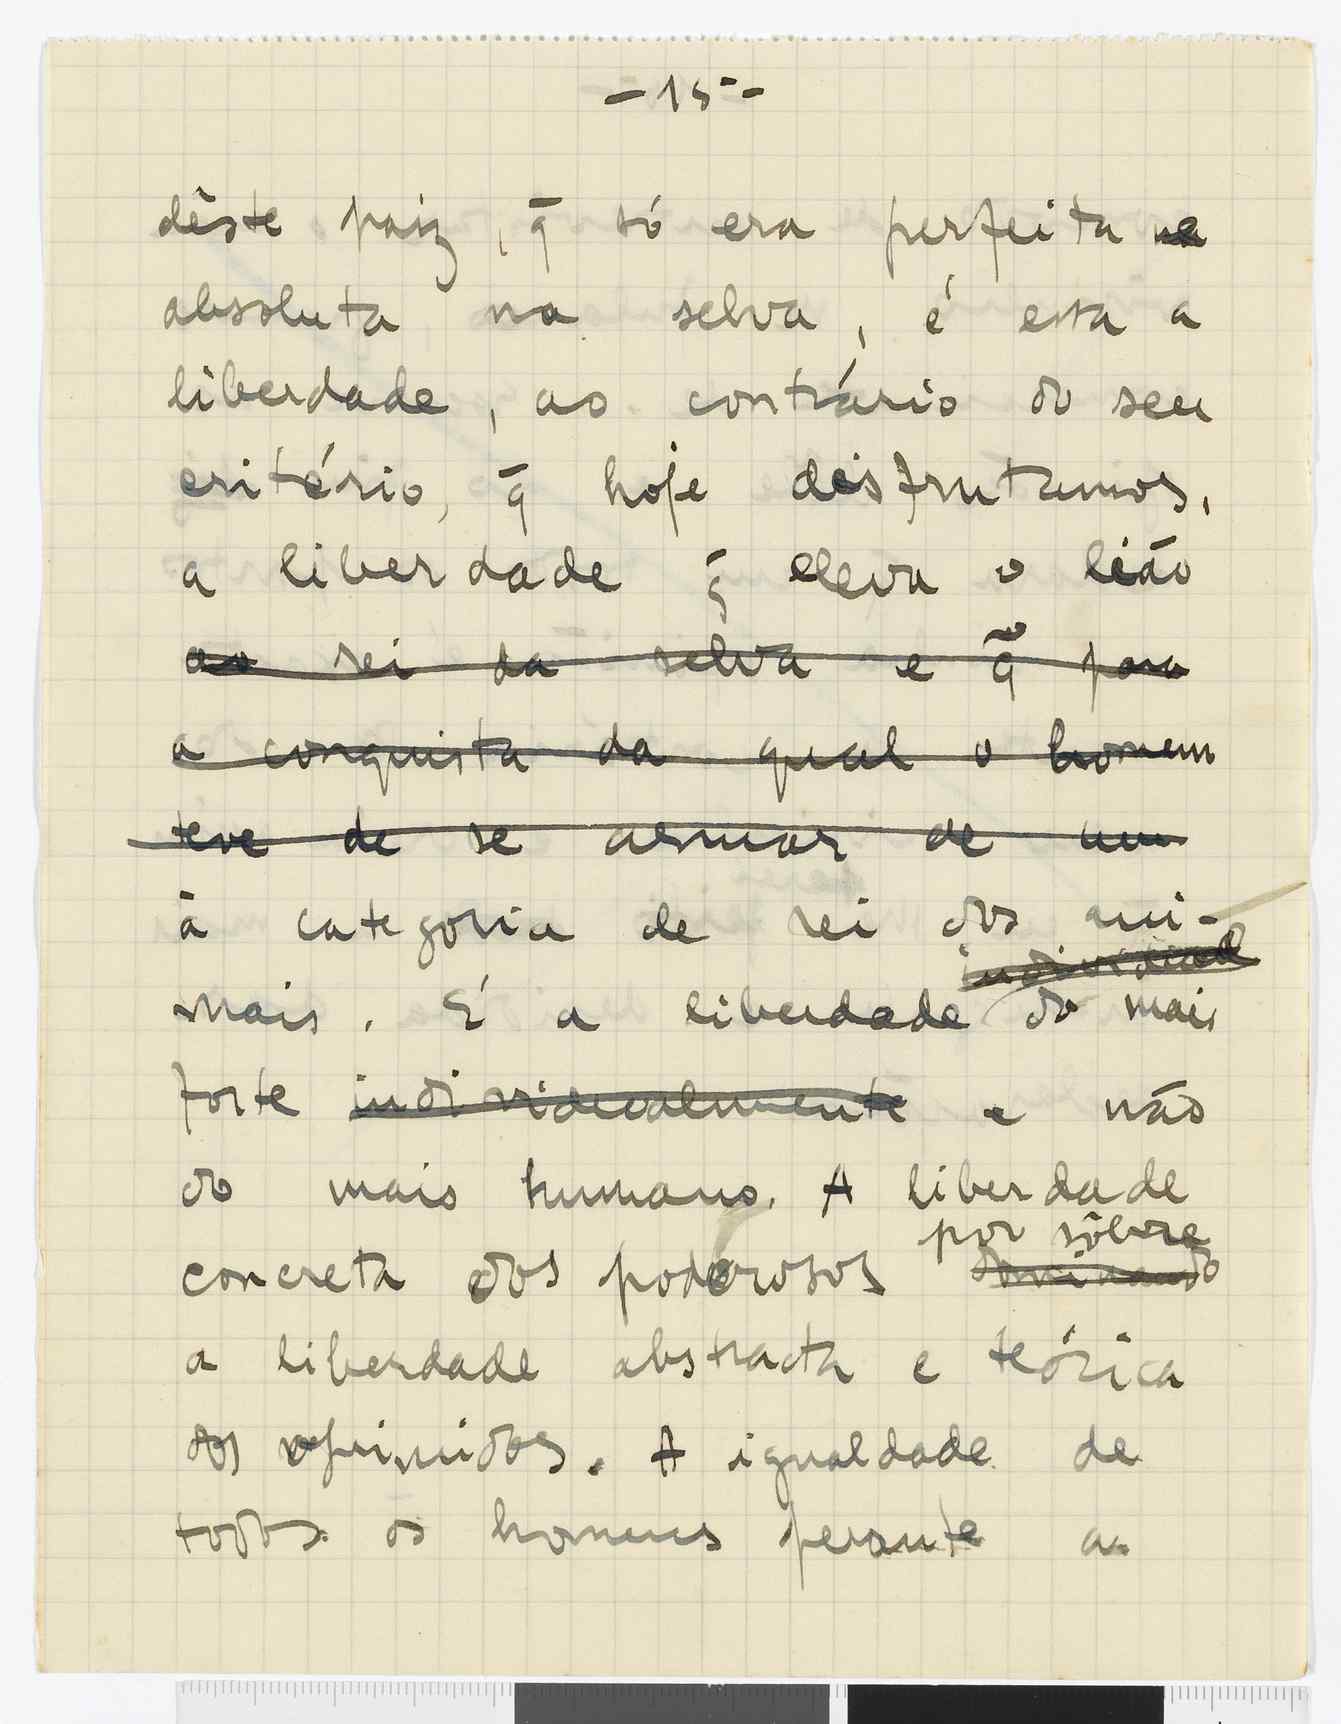 - 15 -
dêste paiz, q̄ só era perfeita na
absoluta na selva, é esta a
liberdade, ao contrário do seu
critério, q̄ hoje disfrutamos,
a liberdade q̄ eleva o leão
ao rei da selva e q̄ para
a conquista da qual o homem
teve de se armar de um
à categoria de rei dos ani-
individual
mais. É a liberdade do mais
forte individualmente e não
do mais humano. A liberdade
por sôbre
concreta dos poderosos dominando
a liberdade abstracta e teórica
dos oprimidos. A igualdade de
todos os homens perante a